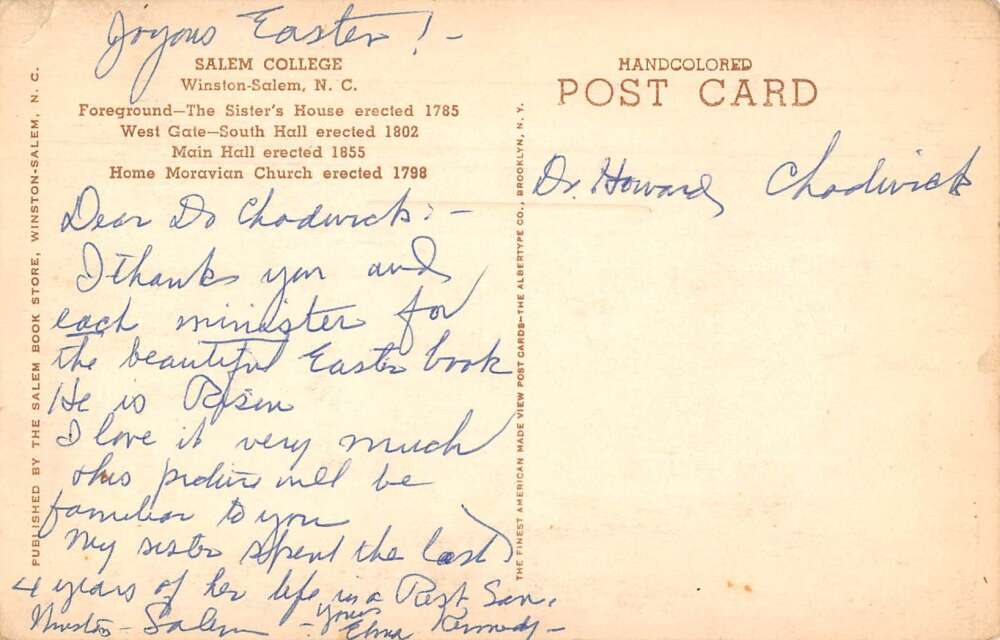 Joyous Easter! -
SALEM COLLEGE
Winston-Salem, N. C.
Foreground—The Sister's House erected 1785
West Gate—South Hall erected 1802
Main Hall erected 1855
Home Moravian Church erected 1798
Dear Dr Chadwick: -
I thank you and
each minister for
the beautiful Easter book
He is Risen
I love it very much
this picture will be
familiar to you
My sister spent the last
4 years of her life in a Rest San.
Winston - Salem - yours
Elma Kennedy -
PUBLISHED BY THE SALEM BOOK STORE, WINSTON-SALEM, N. C.
THE FINEST AMERICAN MADE VIEW POST CARDS—THE ALBERTYPE CO., BROOKLYN, N. Y.
HANDCOLORED
POST CARD
Dr. Howard Chadwick